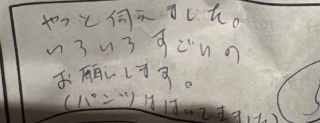 やっと伺えました。
いろいろすごいの
お願いします。
(パンツははいてきました)